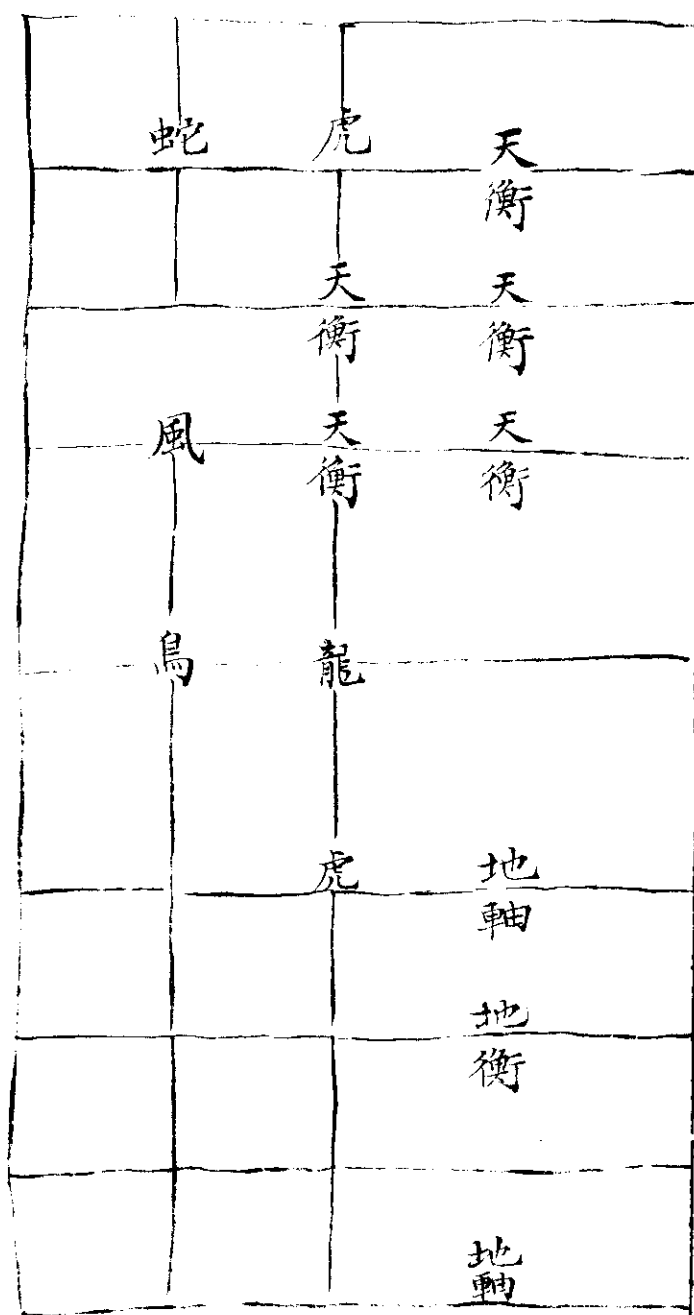 天衡
天衡
天衡
地軸
地衡
地軸
虎
天衡
天衡
龍
虎
蛇
風
鳥